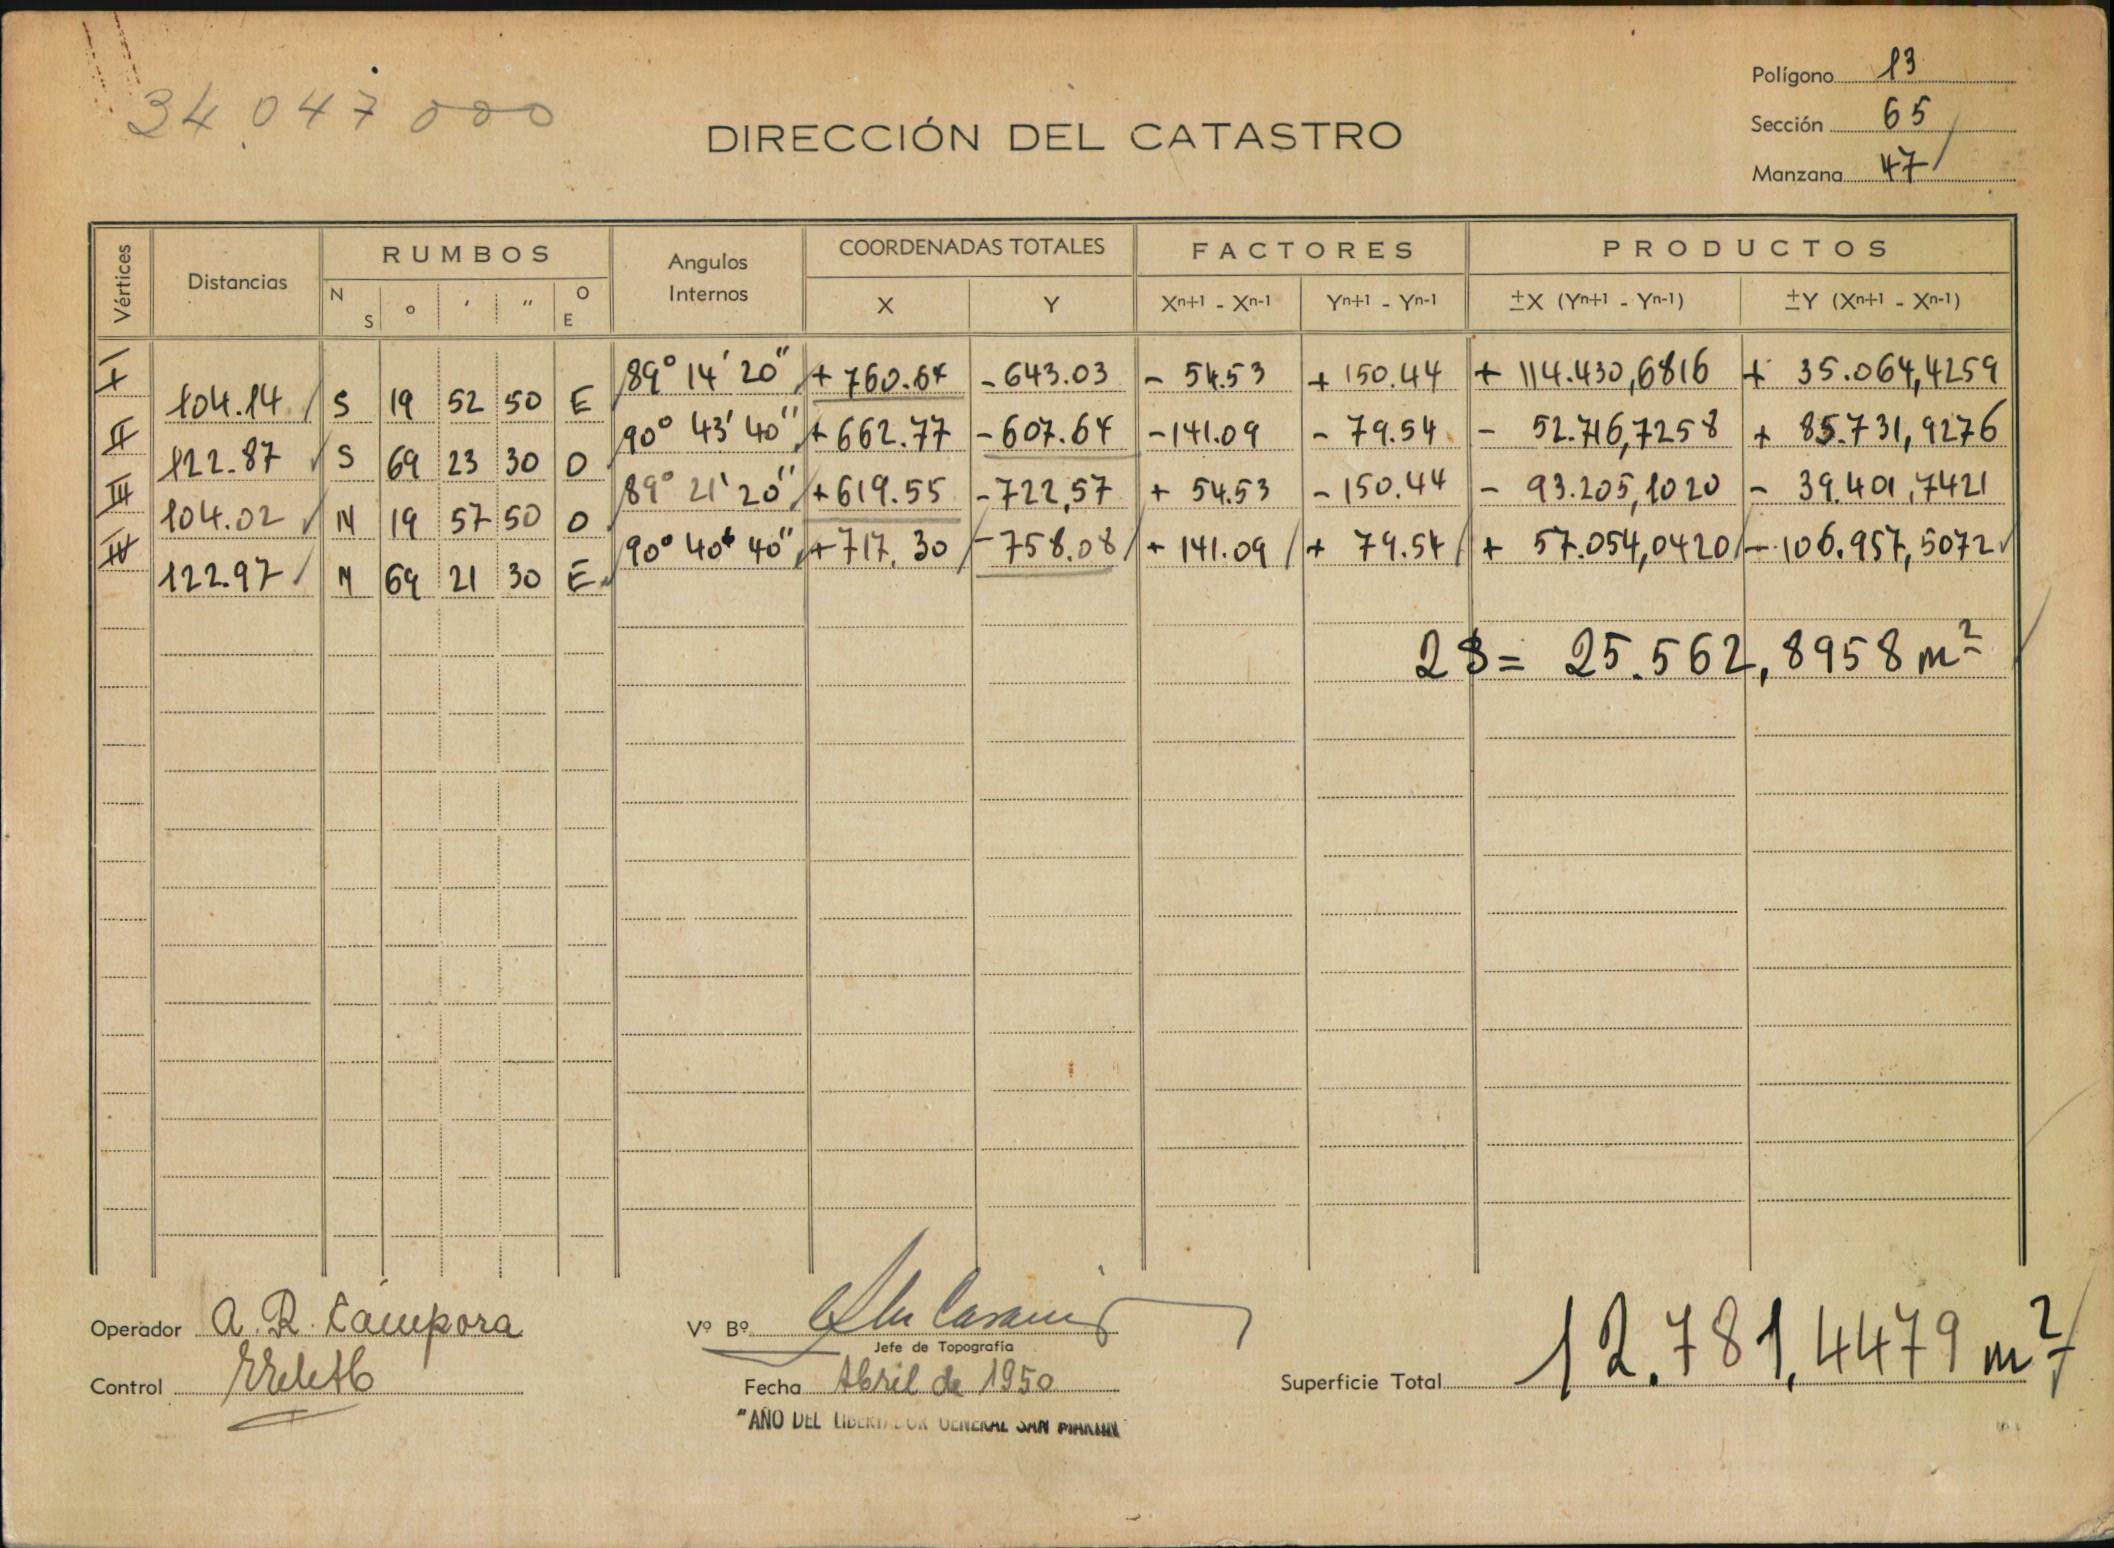 34 047 000
Polígono 13
Sección 65
Manzana 47
DIRECCIÓN DEL CATASTRO
Vértices Distancias RUMBOS Angulos Internos COORDENADAS TOTALES FACTORES PRODUCTOS
N S ° ′ ″ O E X Y Xn+1 - Xn-1 Yn+1 - Yn-1 ±X (Yn+1 - Yn-1) ±Y (Xn+1 - Xn-1)
I 89° 14' 20" +760.64 -643.03 - 54.53 +150.44 + 114.430,6816 + 35.064,4259
104.14 S 19 52 50 E
II 90° 43' 40" +662.77 -607.64 -141.09 - 79.54 - 52.716,7258 + 85.731,9276
122.87 S 69 23 30 O
III 89° 21' 20" +619.55 -722,57 + 54.53 -150.44 - 93.205,1020 - 39.401,7421
104.02 N 19 57 50 O
IV 90° 40' 40" +717.30 -758.08 +141.09 + 79.54 + 57.054,0420 -106.957,5072
122.97 N 69 21 30 E
2S= 25.562,8958 m²
Operador A. R. Cámpora
Vº Bº
Jefe de Topografía
Control
Fecha Abril de 1950
Superficie Total 12.781,4479 m²
"AÑO DEL LIBERTADOR GENERAL SAN MARTIN"